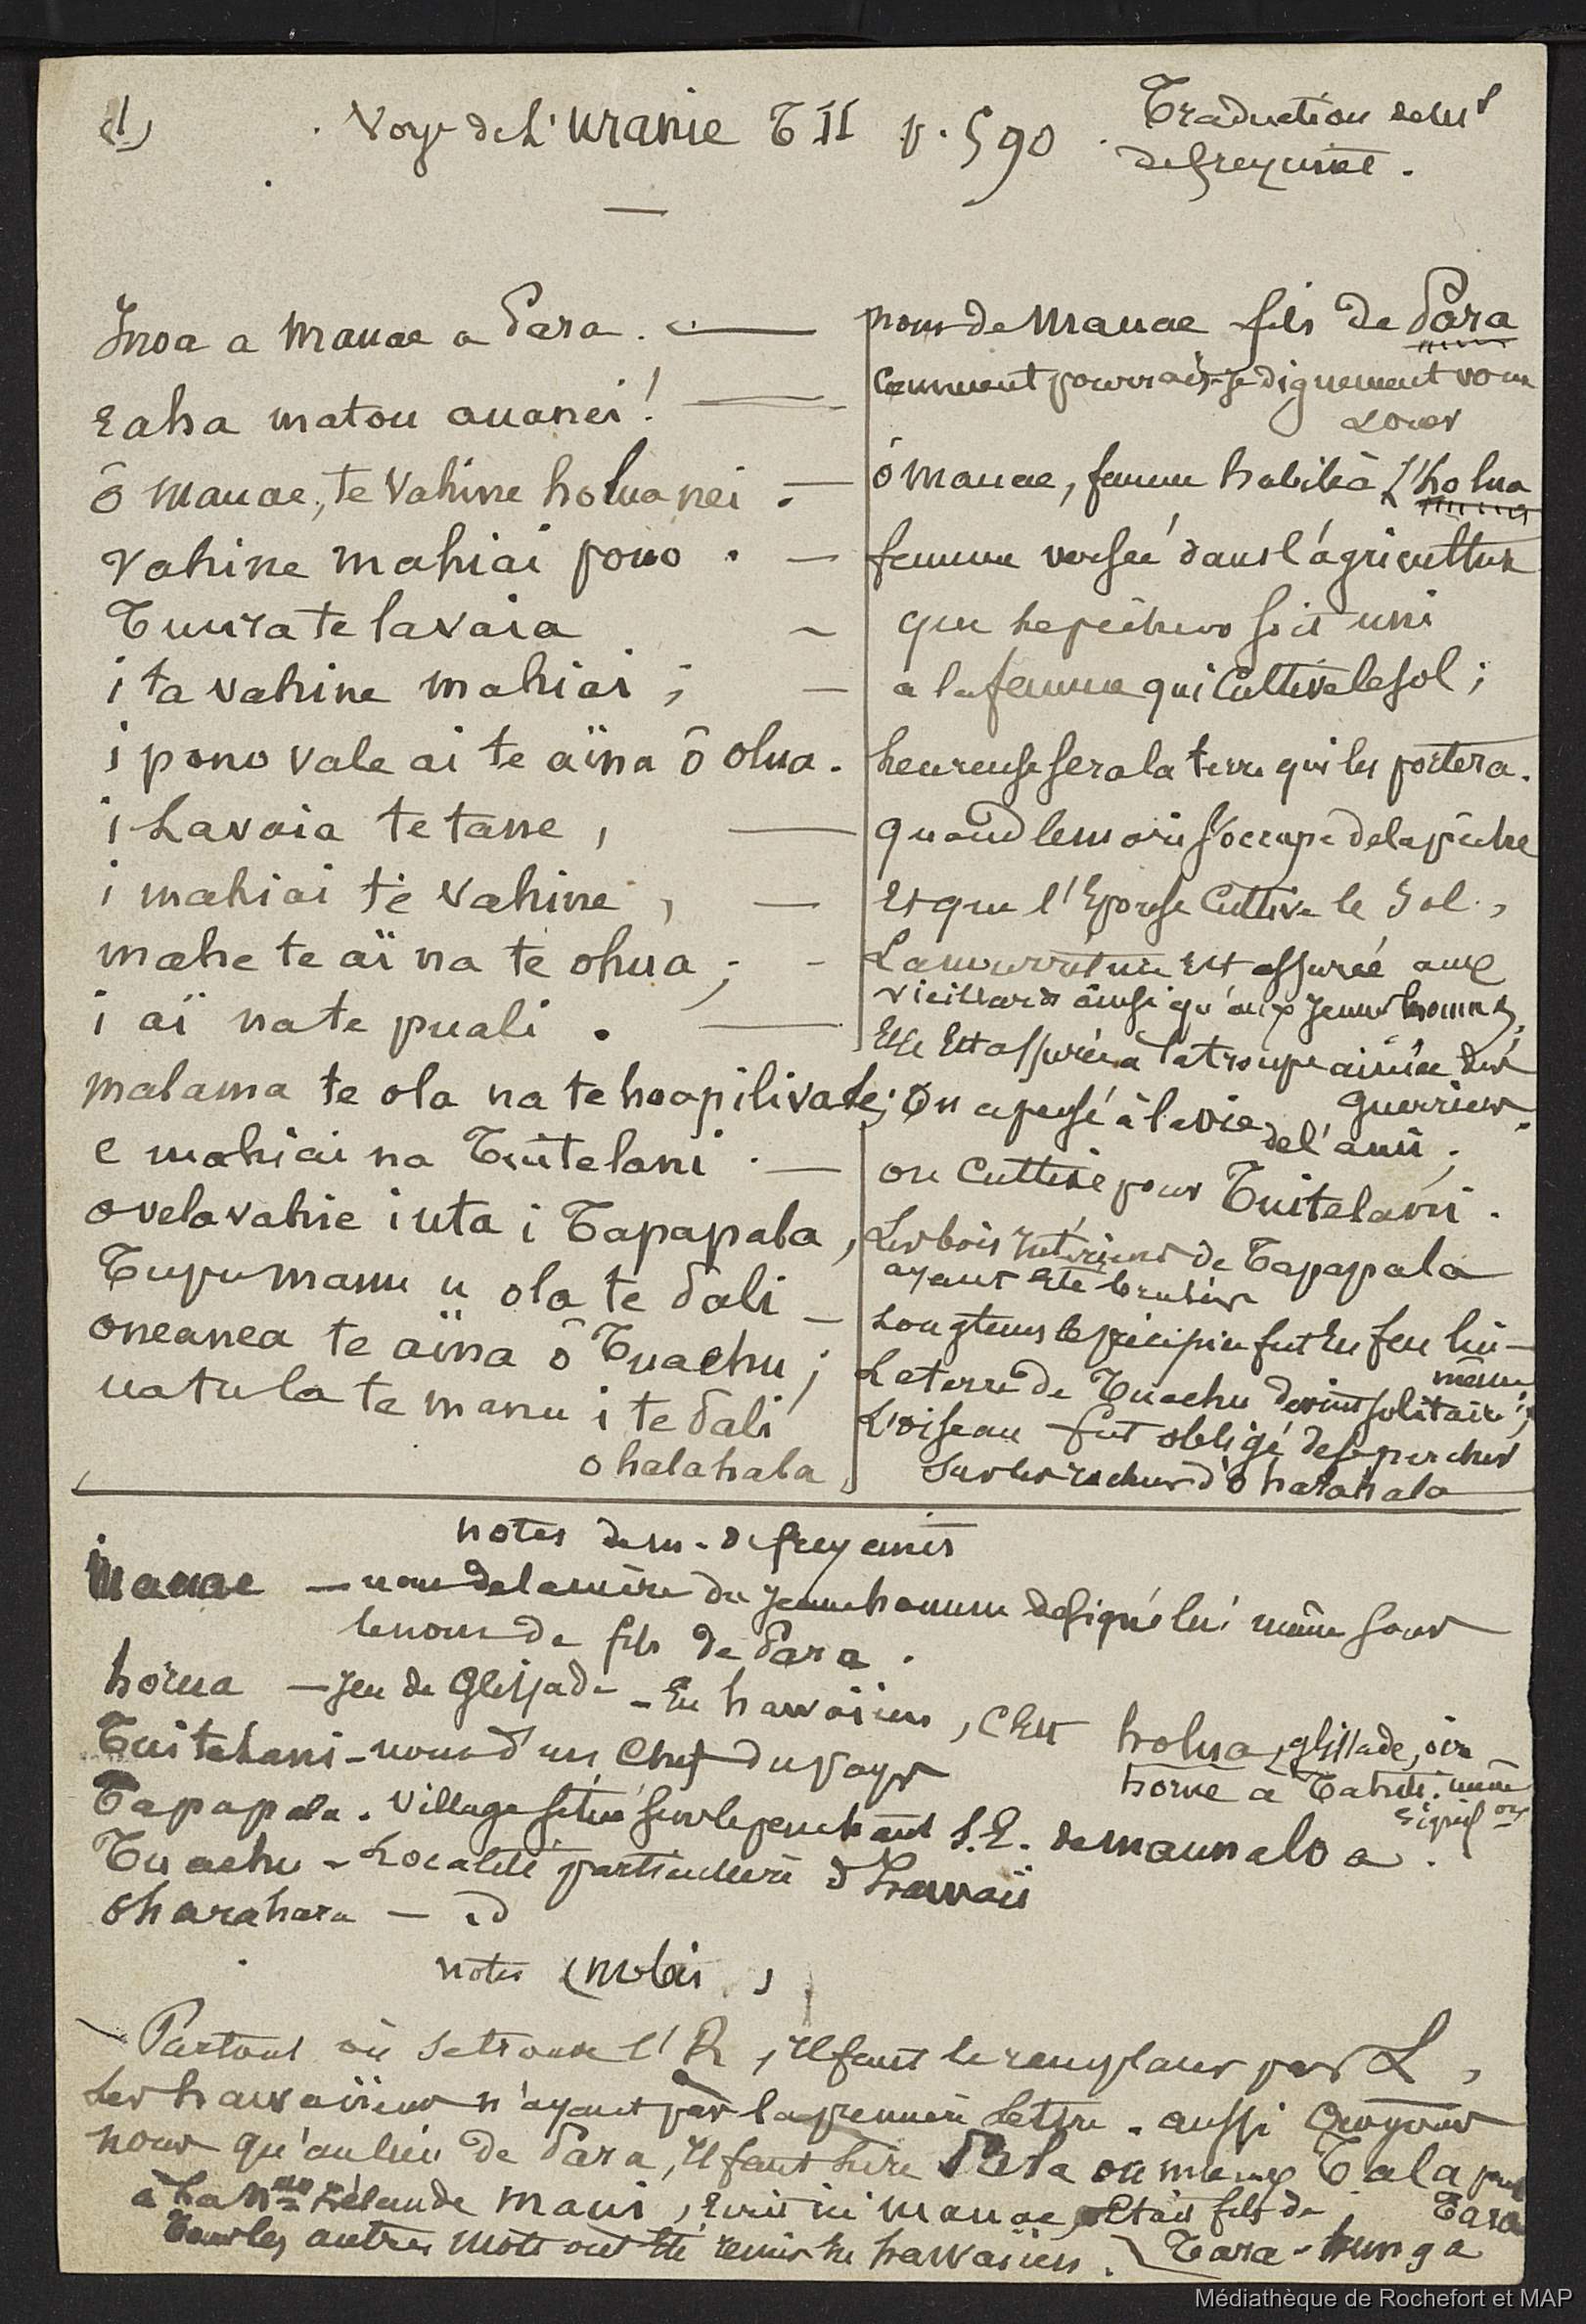 (1) Voyge de L'Uranie T II p. 590. Traduction de Mr
de Freycinet.
Inoa a Mauae a Para. — nom de Mauae fils de Para
Eaha matou auanei! — Comment pourrais-je dignement vous
Louer
ô Mauae, te Vahine holua nei. — ô Mauae, femme habile à l'holua
Vahine mahiai pono. — femme versée dans l'agriculture
Tuura te lavaia — que le pêcheur soit uni
i ta vahine mahiai; — a la femme qui Cultive le sol;
i pono vale ai te aïna ô olua. heureuse sera la terre qui les portera.
i Lavaia te tane, — quand le mari s'occupe de la pêche
i mahiai te Vahine, — Et que l'Epouse Cultive le Sol,
mahe te aï na te ohua; - La nourriture Est assurée aux
vieillards ainsi qu'aux jeunes hommes,
i aï na te puali. — Elle Est assurée à la troupe aimée des
guerriers.
malama te ola na te hoapilivale; On a pensé à la vie
de l'ami;
e mahiai na Tuitelani. — on Cultive pour Tuitelani.
ovela vahie i uta i Tapapala, Les bois intérieurs de Tapapala
ayant été brulés
Tupu manu u ola te dali — Longtems le précipice fut En feu lui-
même;
oneanea te aïna ô Tuaehu; La terre de Tuaehu devint solitaire;
uatula te manu i te dali L'oiseau fut obligé de se percher
ohalahala. sur les rochers d'oharahala
notes de M. de Freycinet
Mauae — nom de la mère du jeune homme désigné lui même sous
le nom de fils de Para.
horua — Jeu de Glissade - En hawaiien, C'Est holua, glissade, où
horue a Tahiti. même
signif on
Tuitelani - nom d'un Chef du pays
Tapapala. Village situé sur le penchant S.E. de maunaloa.
Tuaehu - Localité particulière d'hawaii
Oharahara — id
notes (mobis)
Partout où se trouve l'R, Il faut le remplacer par L,
Les hawaiiens n'ayant pas la première Lettre. aussi croyons
nous qu'au lieu de Para, Il faut lire Pala ou mieux Tala
à La Nlle Zélande Maui, Ecrit ici Mauae, Etait fils de Tara
Tous les autres mots ont été remis En hawaiien. Tara-hunga
Médiathèque de Rochefort et MAP